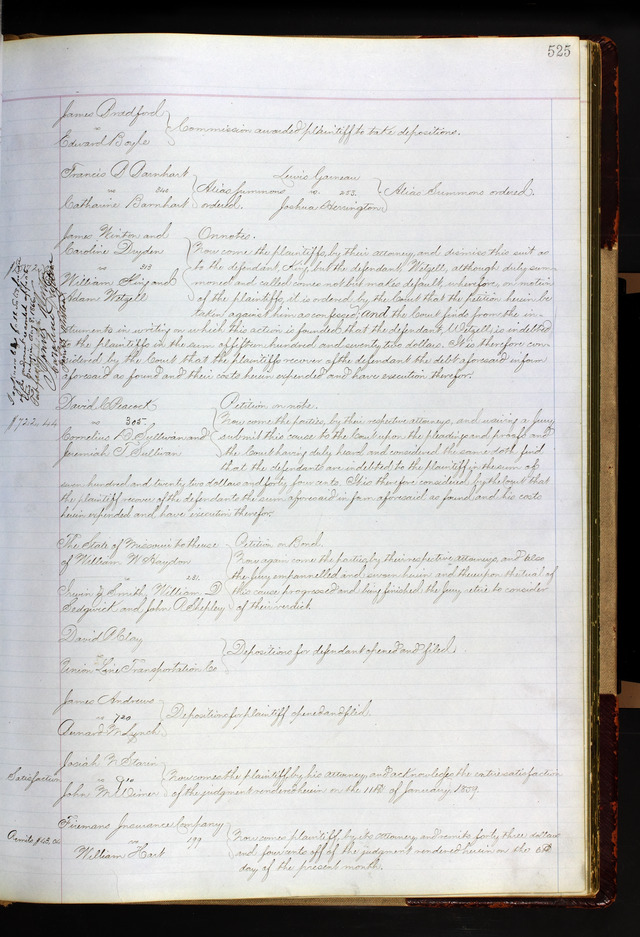 525
James Bradford
vs
Edward Boyle
Commission awarded plaintiff to take depositions.
Francis D Barnhart
vs 340
Catharine Barnhart
Alias Summons
ordered.
Lewis Garneau
vs. 253.
Joshua Herrington
Alias Summons ordered.
James Kenton and
Caroline Dryden
vs 313
William King and
Adam Wetzell
On notes.
Now come the plaintiffs by their attorney, and dismiss this suit as
to the defendant, King, but the defendant, Wetzell, although duly sum-
moned and called comes not but makes default, wherefore, on motion
of the plaintiffs, it is ordered by the Court that the petition herein be
taken against him as confessed; and the Court finds from the in-
struments in writing on which this action is founded that the defendant, Wetzell is indebted
to the plaintiffs in the sum of fifteen hundred and seventy two dollars. It is therefore con-
sidered by the Court that the plaintiffs recover of the defendant the debt aforesaid in form
aforesaid as found and their costs herein expended and have execution therefor.
$722.44
David C Peacock
vs 305
Cornelius D. Sullivan and
Jeremiah T. Sullivan
Petition on note.
Now come the parties, by their respective attorneys, and waiving a Jury
submit this cause to the Court upon the pleadings and proofs and
the Court having duly heard and considered the same doth find
that the defendants are indebted to the plaintiff in the sum of
seven hundred and twenty two dollars and forty four cents. It is therefore considered by the Court that
the plaintiff recover of the defendants the sum aforesaid in form aforesaid as found and his costs
herein expended and have execution therefor.
The State of Missouri to the use
of William W Haydon
vs 281.
Irwin Z. Smith, William D
Sedgwick and John R Shepley
Petition on Bond.
Now again come the parties by their respective attorneys, and also
the Jury empannelled and sworn herein and thereupon the trial of
this cause progressed and being finished the Jury retire to consider
of their verdict
David P Clay
vs
Union Line Transportation Co
Depositions for defendant opened and filed.
James Andrews
vs 720
Bernard M Lynch
Depositions for plaintiff opened and filed.
Satisfaction
Josiah N Starin
vs 910
John M Weimer
Now comes the plaintiff by his attorney and acknowledges the entire satisfaction
of the judgment rendered herein on the 11th of January 1859.
Remits $43.04
Firemans Insurance Company
vs 199
William Hart
Now comes plaintiff by its attorney and remits forty three dollars
and four cents off of the judgment rendered herein on the 6th
day of the present month.